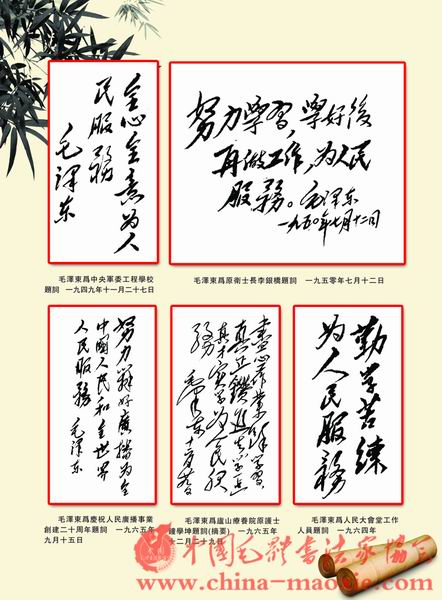 全心全意为人
民服務
毛澤东
努力學習，學好後
再做工作，为人民
服務。毛澤东
一九五〇年七月十二日
毛澤東爲中央軍委工程學校
題詞 一九四九年十一月二十七日
毛澤東爲原衛士長李銀橋題詞 一九五零年七月十二日
努力辦好廣播为全
中國人民和全世界
人民服務 毛澤东
學習
真正鑽進去
为人民服
務 毛澤东
勤学苦練
为人民服務
毛澤東爲慶祝人民廣播事業
創建二十周年題詞 一九六五年
九月十五日
毛澤東爲廬山療養院原護士
鐘學坤題詞(摘要) 一九六五年
十二月二十九日
毛澤東爲人民大會堂工作
人員題詞 一九六四年
中國毛體書法家協